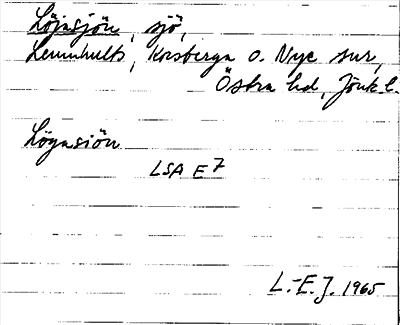 Löjasjön, sjö,
Lemnhults, Korsberga o. Nye snr,
Östra hd, Jönk. l.
Löyasiön
LSA E7
L.-E. J. 1965